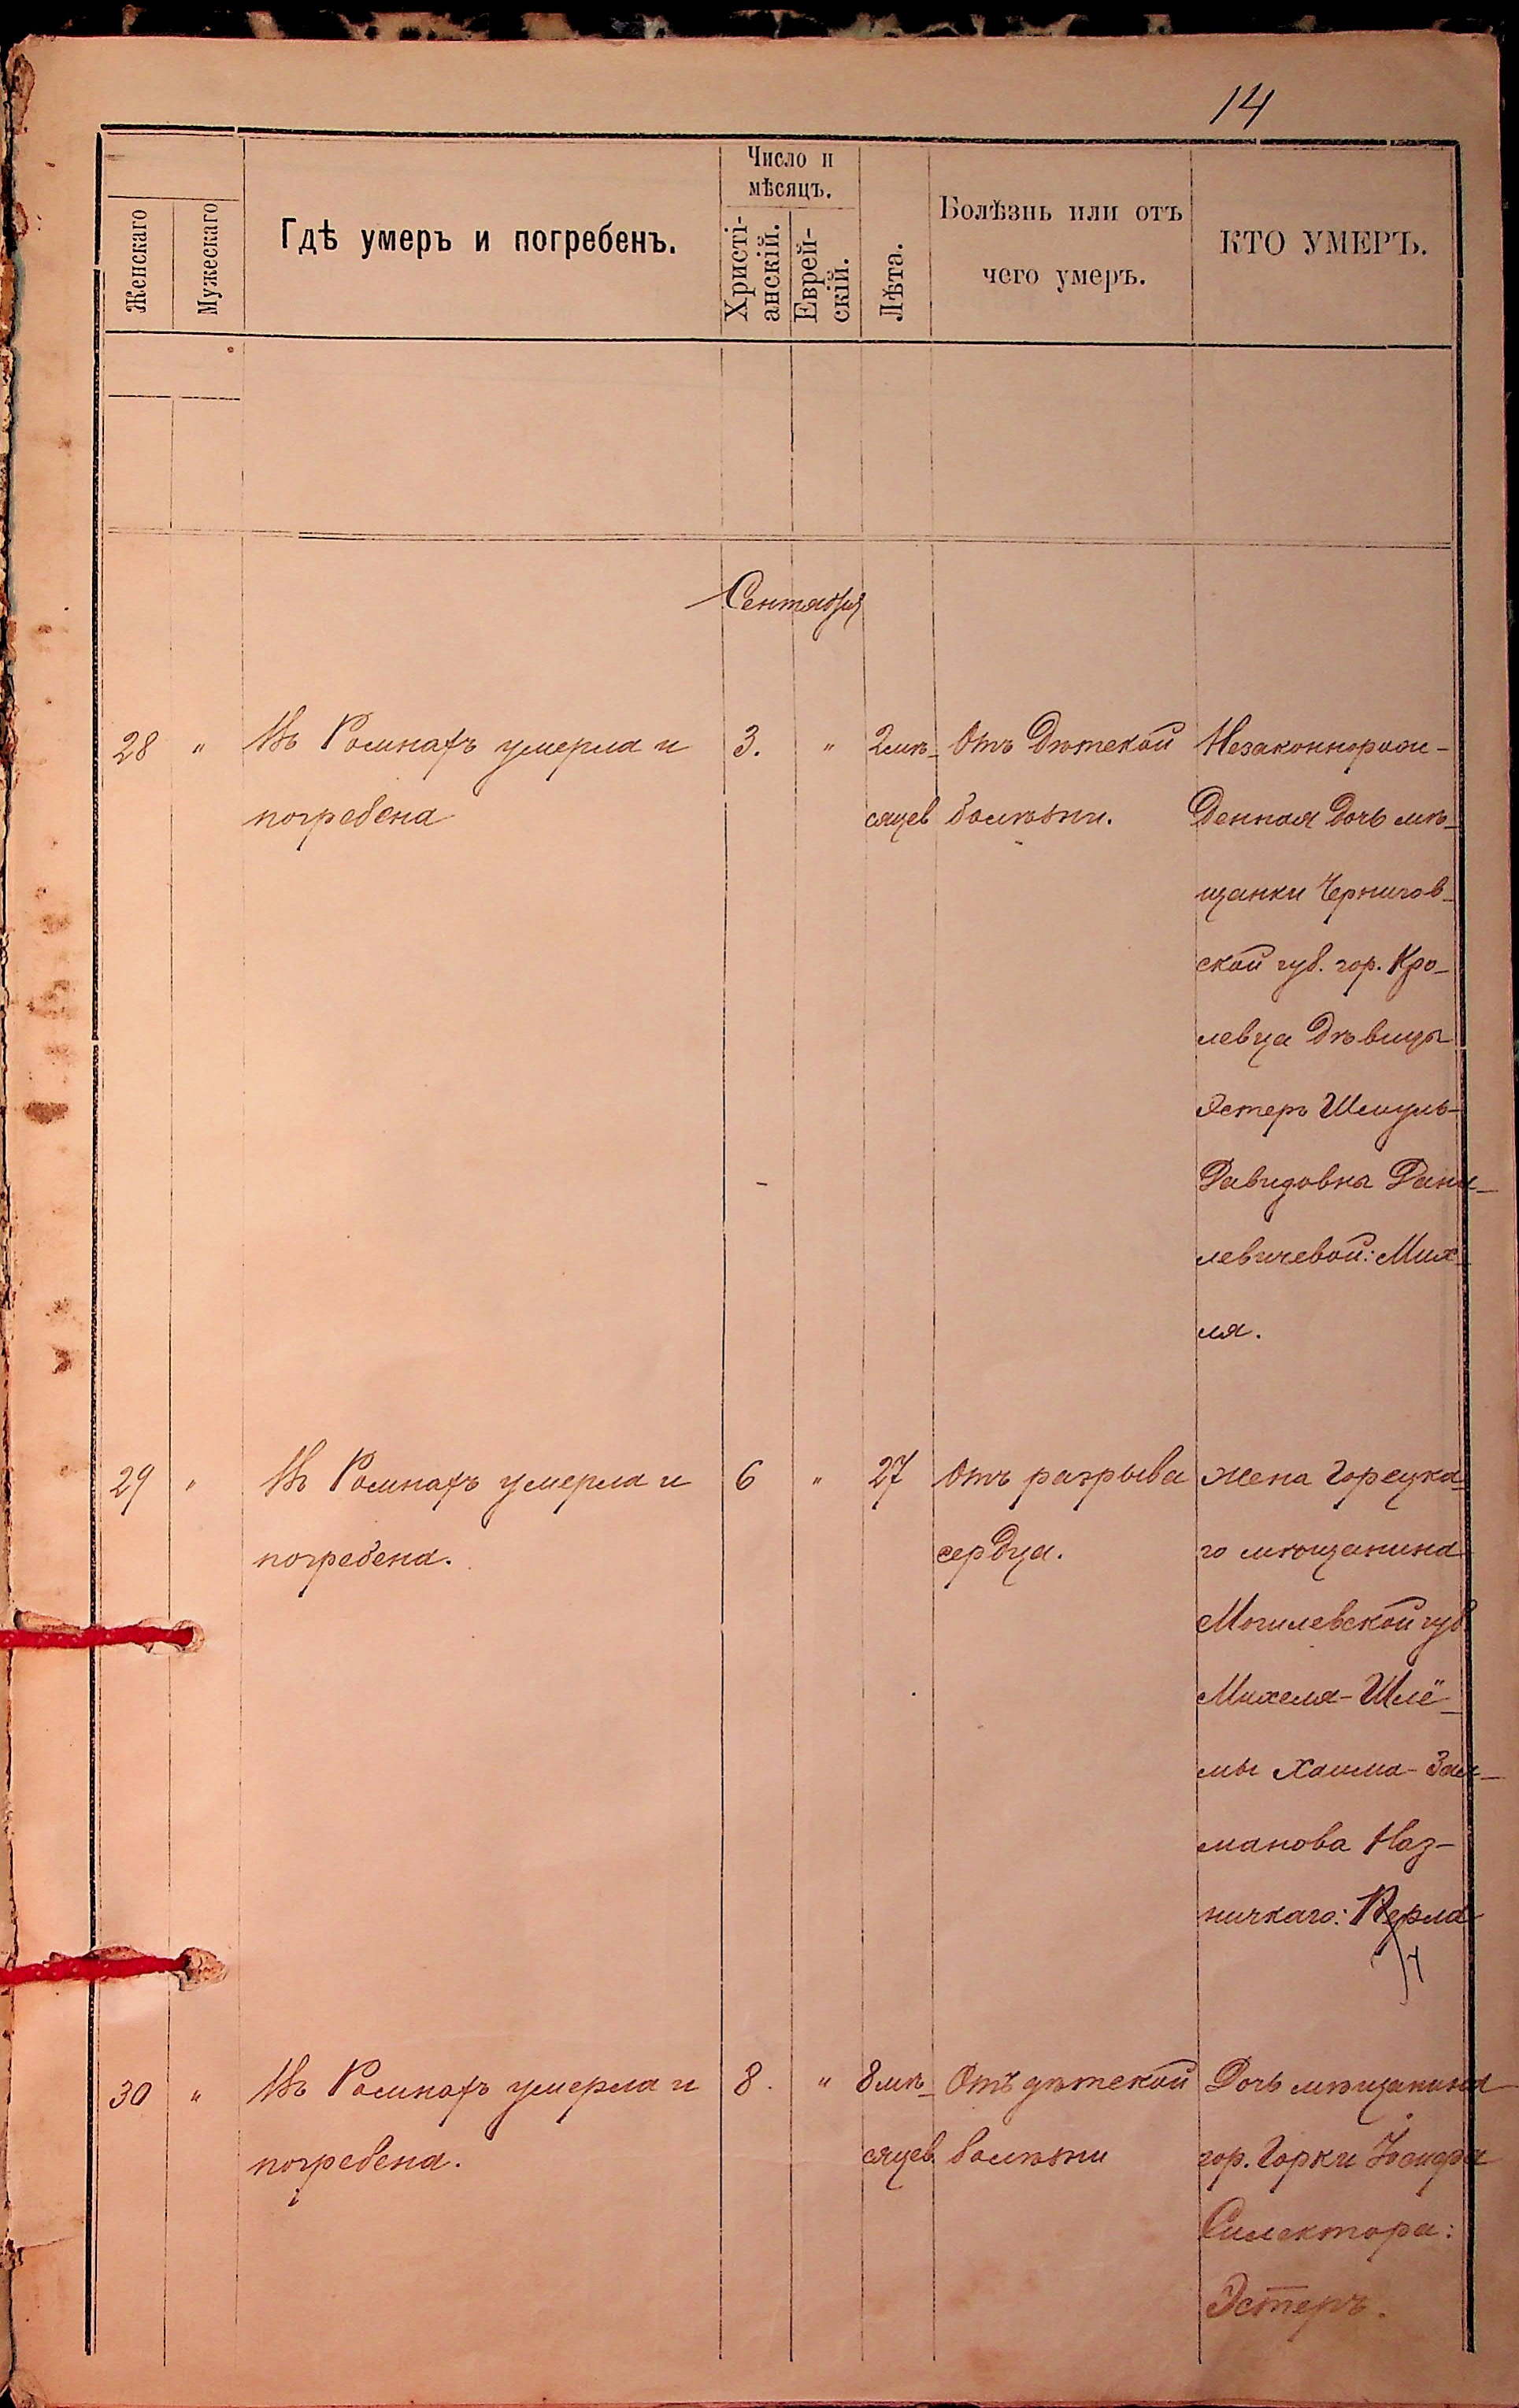 14
Женскаго
Мужескаго
Гдѣ умеръ и погребенъ.
Число и
мѣсяцъ.
Христі-
анскій.
Еврей-
скій.
Лѣта.
Болѣзнь или отъ
чего умеръ.
КТО УМЕРЪ.
Сентября
28 " Въ Ромнахъ умерла и
погребена
3. "
2 мѣ-
сяцев
Отъ Дѣтской
болѣзни.
Незаконнорож-
денная Дочь мѣ-
щанки Чернигов-
ской губ. гор. Кро-
левца Дѣвицы
Эстеръ Шмуль-
Давидовна Дани-
левичевой: Мих-
ля.
29 " Въ Ромнахъ умерла и
погребена.
6 "
27
Отъ разрыва
сердца.
Жена Горецка-
го мѣщанина
Могилевской губ.
Михеля-Шлё-
мы Хаима-Зал-
манова Наз-
ничкаго:
30 " Въ Ромнахъ умерла и
погребена.
8. "
8 мѣ-
сяцев
Отъ дѣтской
болѣзни
Дочь мѣщанина
гор. Горки
Силектора:
Эстеръ.